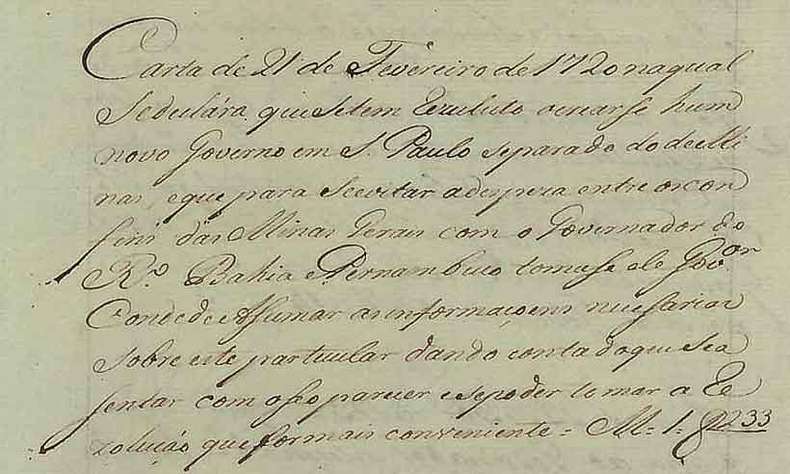 Carta de 21 de Fevereiro de 1720 na qual
Se dclára, que se tem Rezuluto o crearse hum
novo Governo em S. Paulo separado do de Mi
nas, e que para Se evitar a despeza entre os con
fins das Minas Gerais com o Governador do
R.º Bahia e Pernambuco tomase ele Gov.or
Conde de Assumar as informaçoens nusesarias
sobre este particular dando conta do que Se a
sentar com o seo parecer e se poder tomar a Re
zolução que for mais conveniente = M. 1. f 233